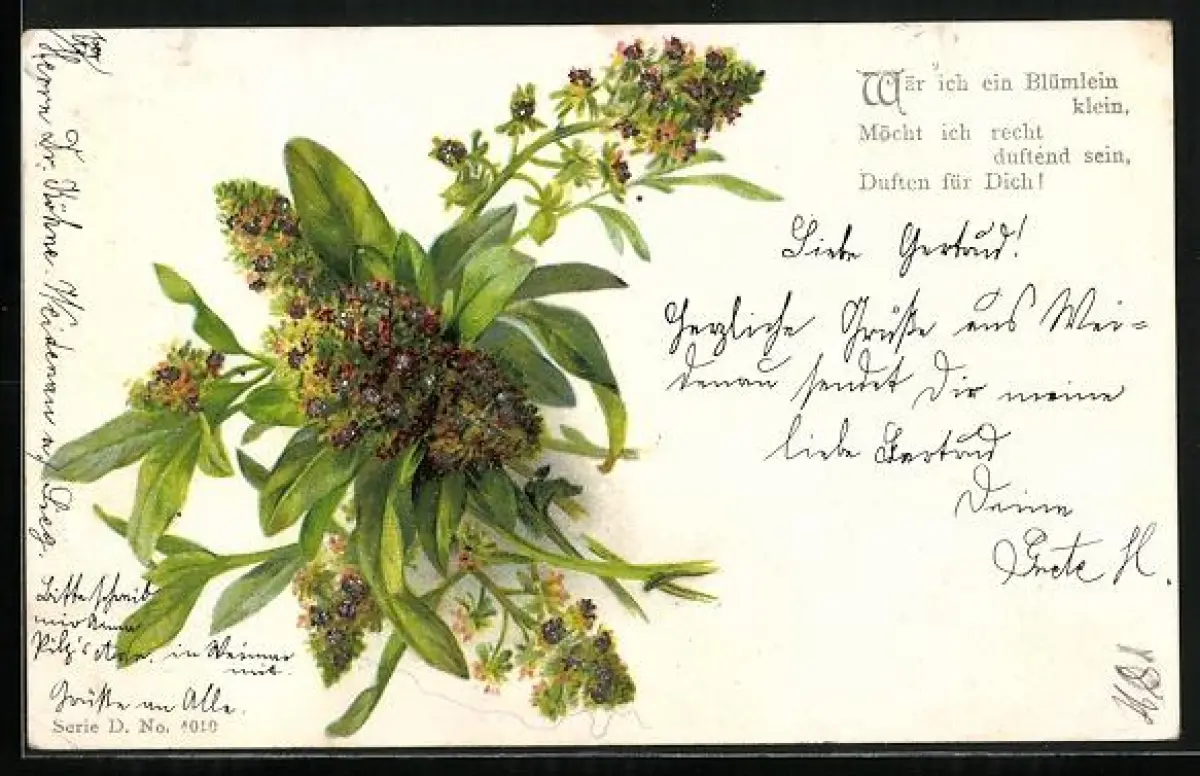 Wär' ich ein Blümlein
klein,
Möcht ich recht
duftend sein,
Duften für Dich!
Liebe Gertrud!
Herzliche Grüße aus Wei-
denau sendet Dir meine
liebe Gertrud
Deine
Grete H.
Herrn Dr. Köhne. Weidenau a/ Sieg.
Bitte schreib
mir Anna
Pilz's Adr. in Weimar
mit.
Grüße an Alle.
Serie D. No. 1010